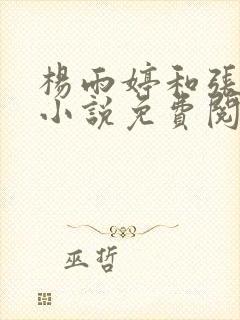 楊雨婷和張
小說免費閱
巫哲